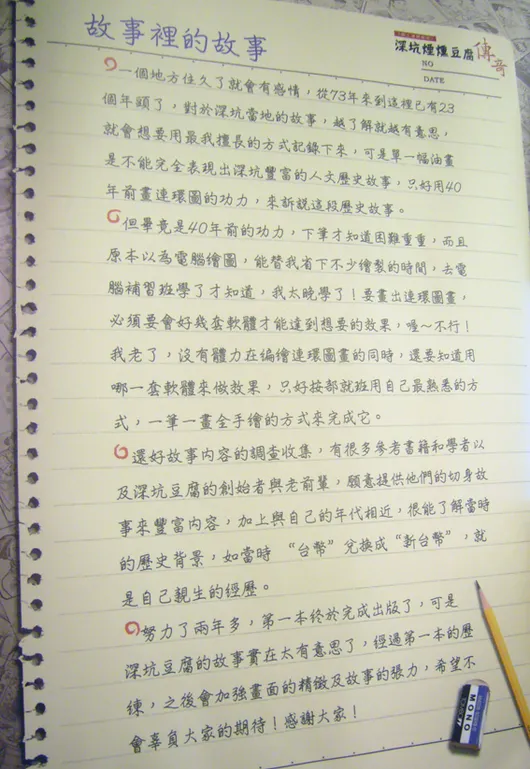 故事裡的故事
深坑煙燻豆腐傳奇
NO
DATE
一個地方住久了就會有感情，從73年來到這裡已有23
個年頭了，對於深坑當地的故事，越了解就越有意思，
就會想要用最我擅長的方式記錄下來，可是單一幅油畫
是不能完全表現出深坑豐富的人文歷史故事，只好用40
年前畫連環圖的功力，來訴說這段歷史故事。
但畢竟是40年前的功力，下筆才知道困難重重，而且
原本以為電腦繪圖，能替我省下不少繪製的時間，去電
腦補習班學了才知道，我太晚學了！要畫出連環圖畫，
必須要會好幾套軟體才能達到想要的效果，喔～不行！
我老了，沒有體力在編繪連環圖畫的同時，還要知道用
哪一套軟體來做效果，只好按部就班用自己最熟悉的方
式，一筆一畫全手繪的方式來完成它。
還好故事內容的調查收集，有很多參考書籍和學者以
及深坑豆腐的創始者與老前輩，願意提供他們的切身故
事來豐富內容，加上與自己的年代相近，很能了解當時
的歷史背景，如當時 “台幣”兌換成“新台幣”，就
是自己親生的經歷。
努力了兩年多，第一本終於完成出版了，可是
深坑豆腐的故事實在太有意思了，經過第一本的歷
練，之後會加強畫面的精緻及故事的張力，希望不
會辜負大家的期待！感謝大家！
MONO